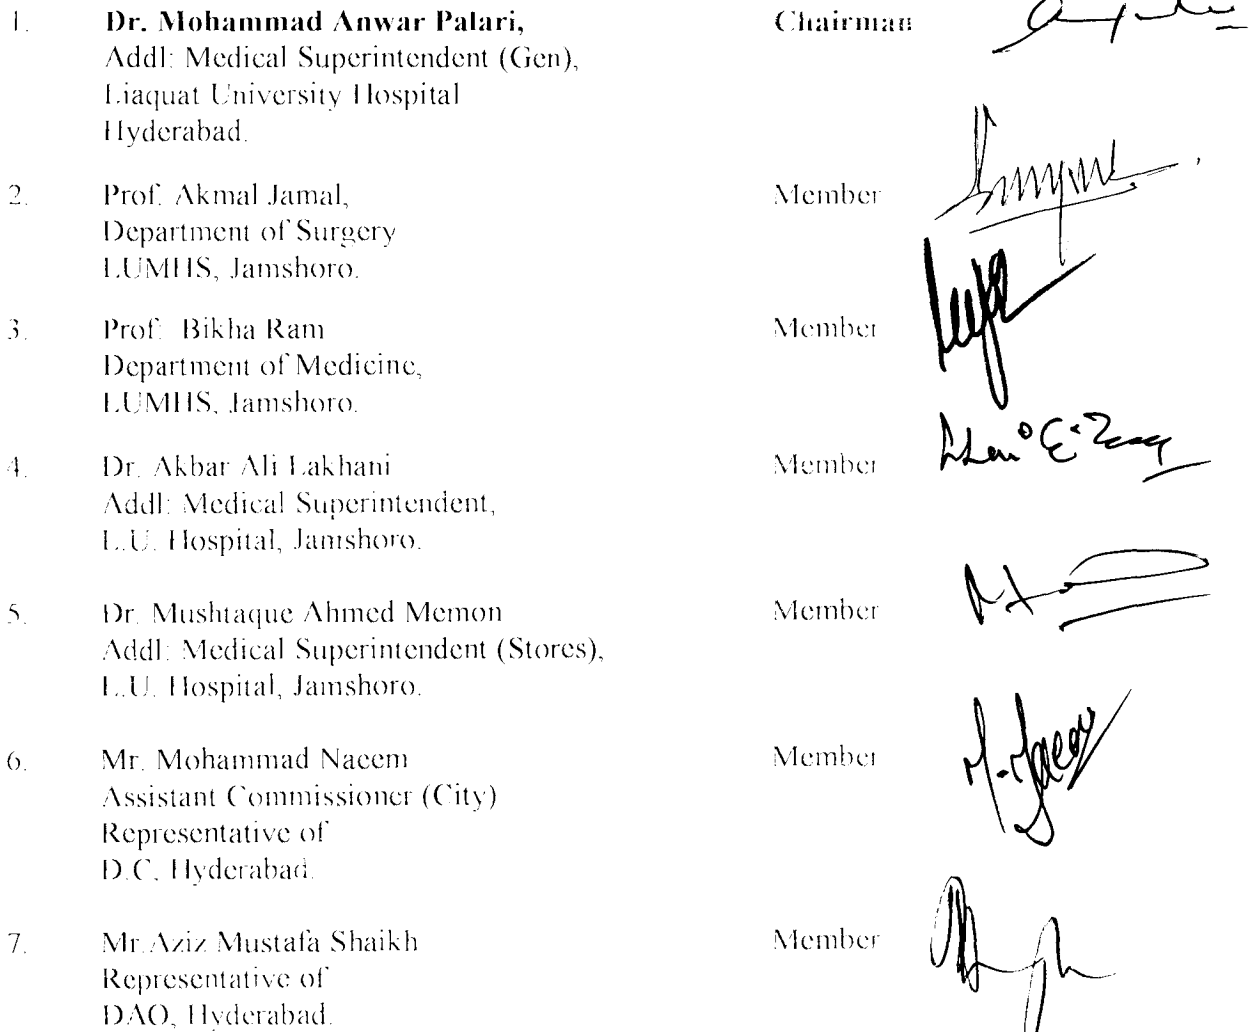 1. Dr. Mohammad Anwar Palari, Chairman
Addl: Medical Superintendent (Gen),
Liaquat University Hospital
Hyderabad.
2. Prof. Akmal Jamal, Member
Department of Surgery
LUMHS, Jamshoro.
3. Prof: Bikha Ram Member
Department of Medicine,
LUMHS, Jamshoro.
4. Dr. Akbar Ali Lakhani Member
Addl: Medical Superintendent,
L.U. Hospital, Jamshoro.
5. Dr. Mushtaque Ahmed Memon Member
Addl: Medical Superintendent (Stores),
L.U. Hospital, Jamshoro.
6. Mr. Mohammad Naeem Member
Assistant Commissioner (City)
Representative of
D.C, Hyderabad.
7. Mr.Aziz Mustafa Shaikh Member
Representative of
DAO, Hyderabad.